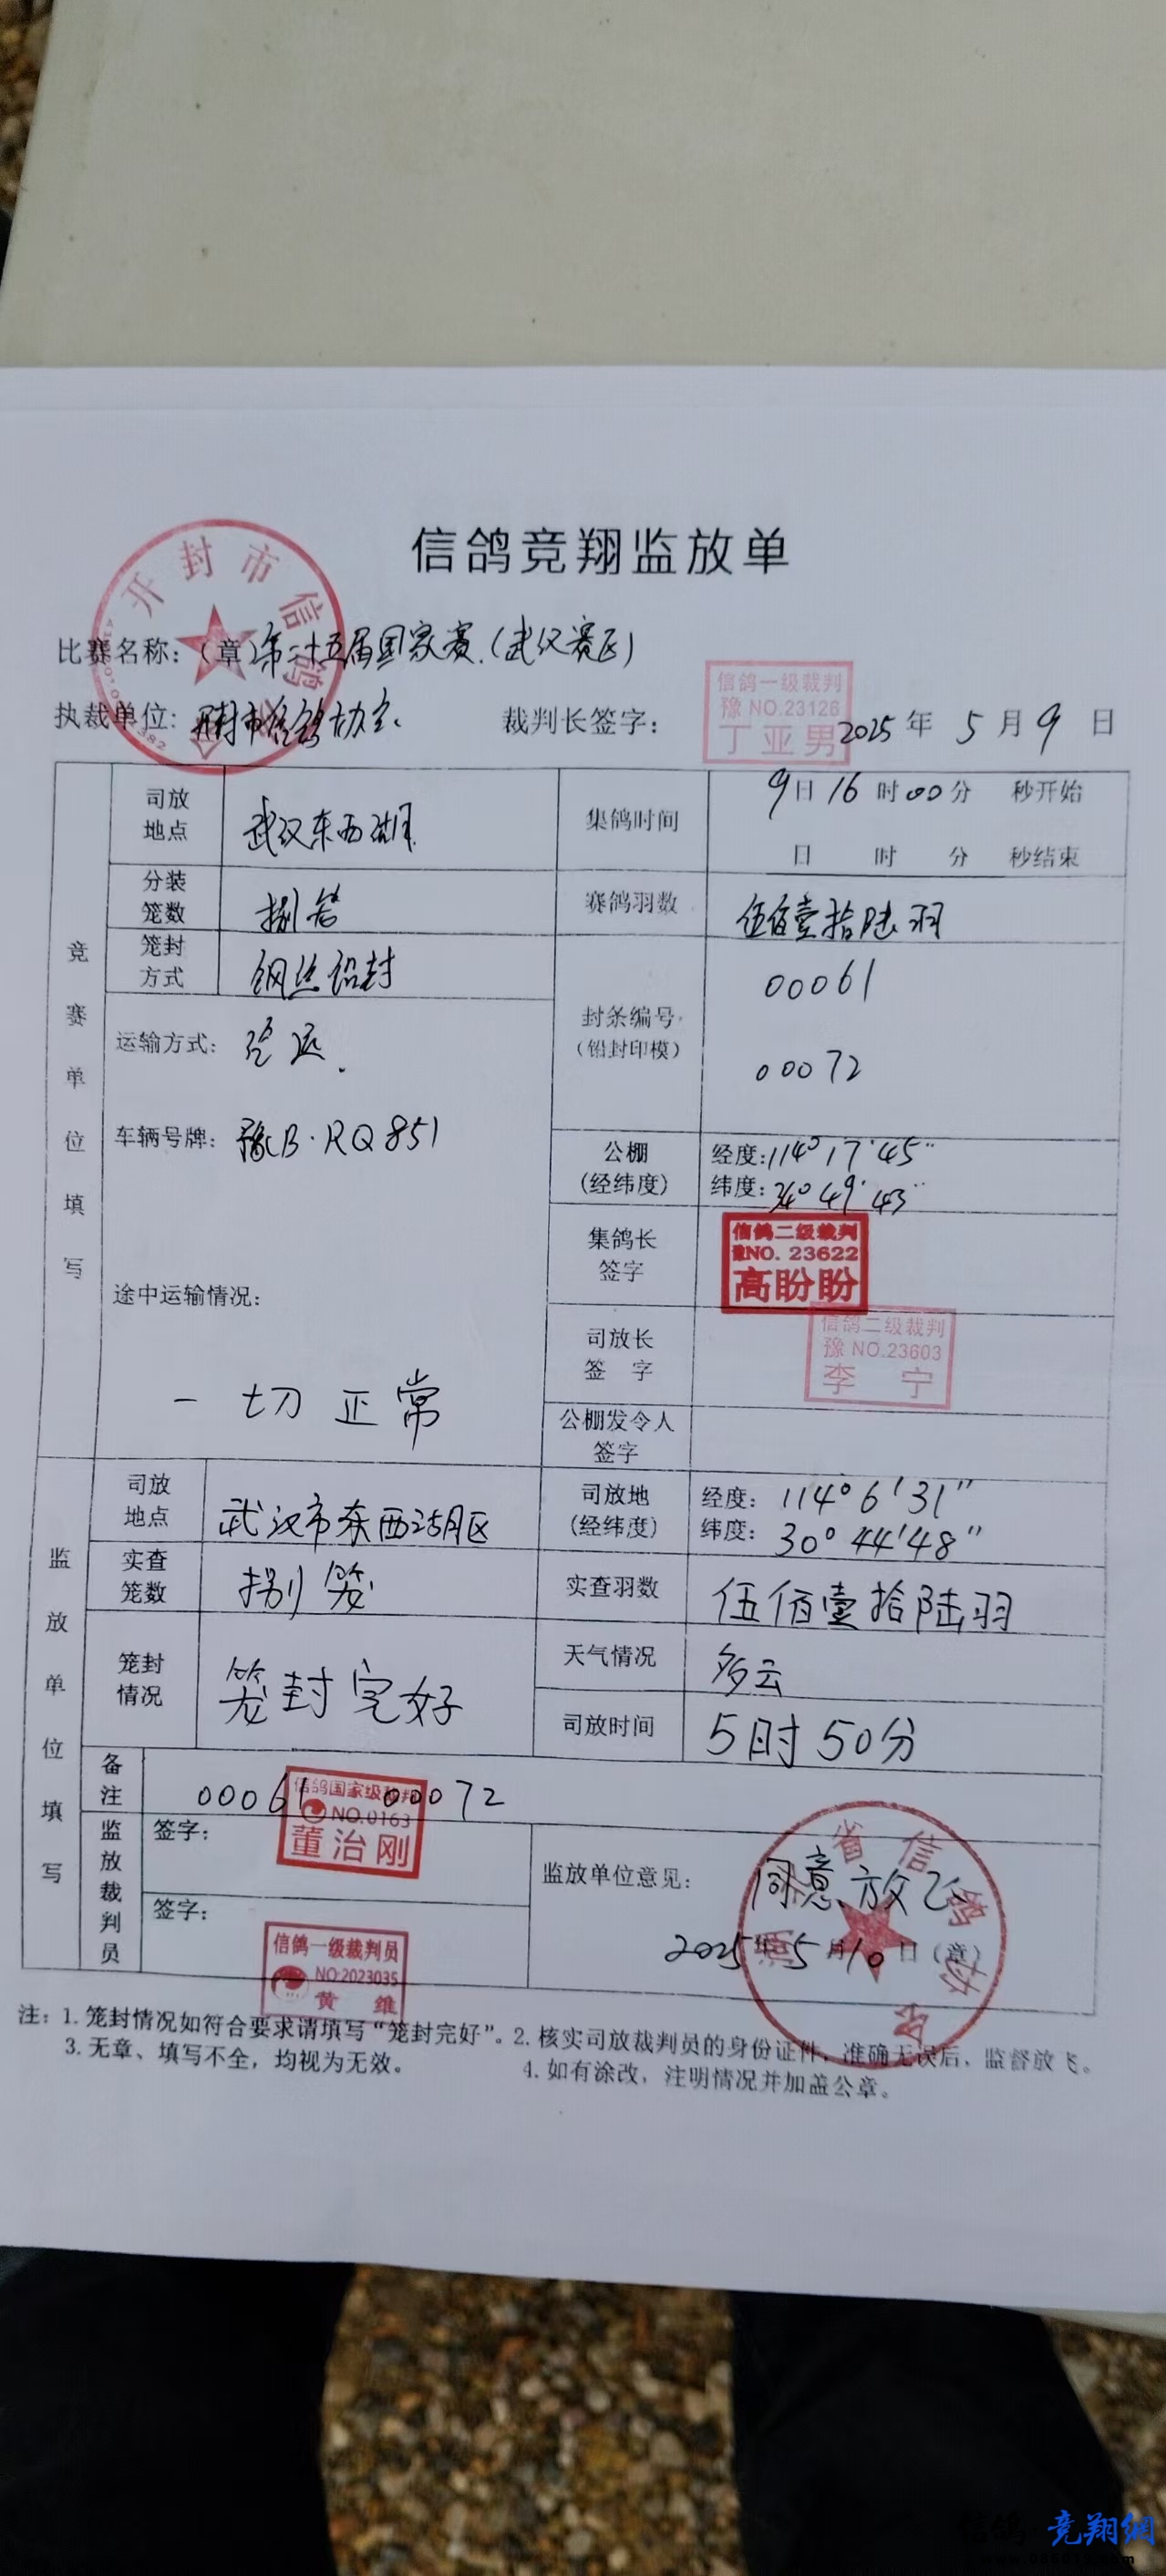 信鸽竞翔监放单
开封市信鸽
比赛名称:(章)第二十五届国家赛.(武汉赛区)
信鸽一级裁判
豫NO.23126
丁亚男
执裁单位:开封市信鸽协会 裁判长签字: 2025年5月9日
竞赛单位填写
司放地点 武汉东西湖 集鸽时间 9日16时00分 秒开始
日 时 分 秒结束
分装笼数 捌笼 赛鸽羽数 伍佰壹拾陆羽
笼封方式 钢丝铅封 封条编号(铅封印模) 00061
00072
运输方式:
车辆号牌:豫B·RQ851
公棚(经纬度) 经度:114°17′45″
纬度:34°49′43″
集鸽长签字
信鸽二级裁判
豫NO. 23622
高盼盼
途中运输情况:
一切正常
司放长签字
信鸽二级裁判
豫NO.23603
李宁
公棚发令人签字
监放单位填写
司放地点 武汉市东西湖区 司放地(经纬度) 经度:114°6′31″
纬度:30°44′48″
实查笼数 捌笼 实查羽数 伍佰壹拾陆羽
笼封情况 笼封完好 天气情况 多云
司放时间 5时50分
备注 00061 00072
信鸽国家级裁判
NO.0163
董治刚
监放裁判员 签字:
签字:
信鸽一级裁判员
NO:2023035
黄维
监放单位意见: 同意放飞
2025年5月10日(章)
省信鸽协会
注:1.笼封情况如符合要求请填写“笼封完好”。2.核实司放裁判员的身份证件,准确无误后,监督放飞。
3.无章、填写不全,均视为无效。 4.如有涂改,注明情况并加盖公章。
信鸽·竞翔網